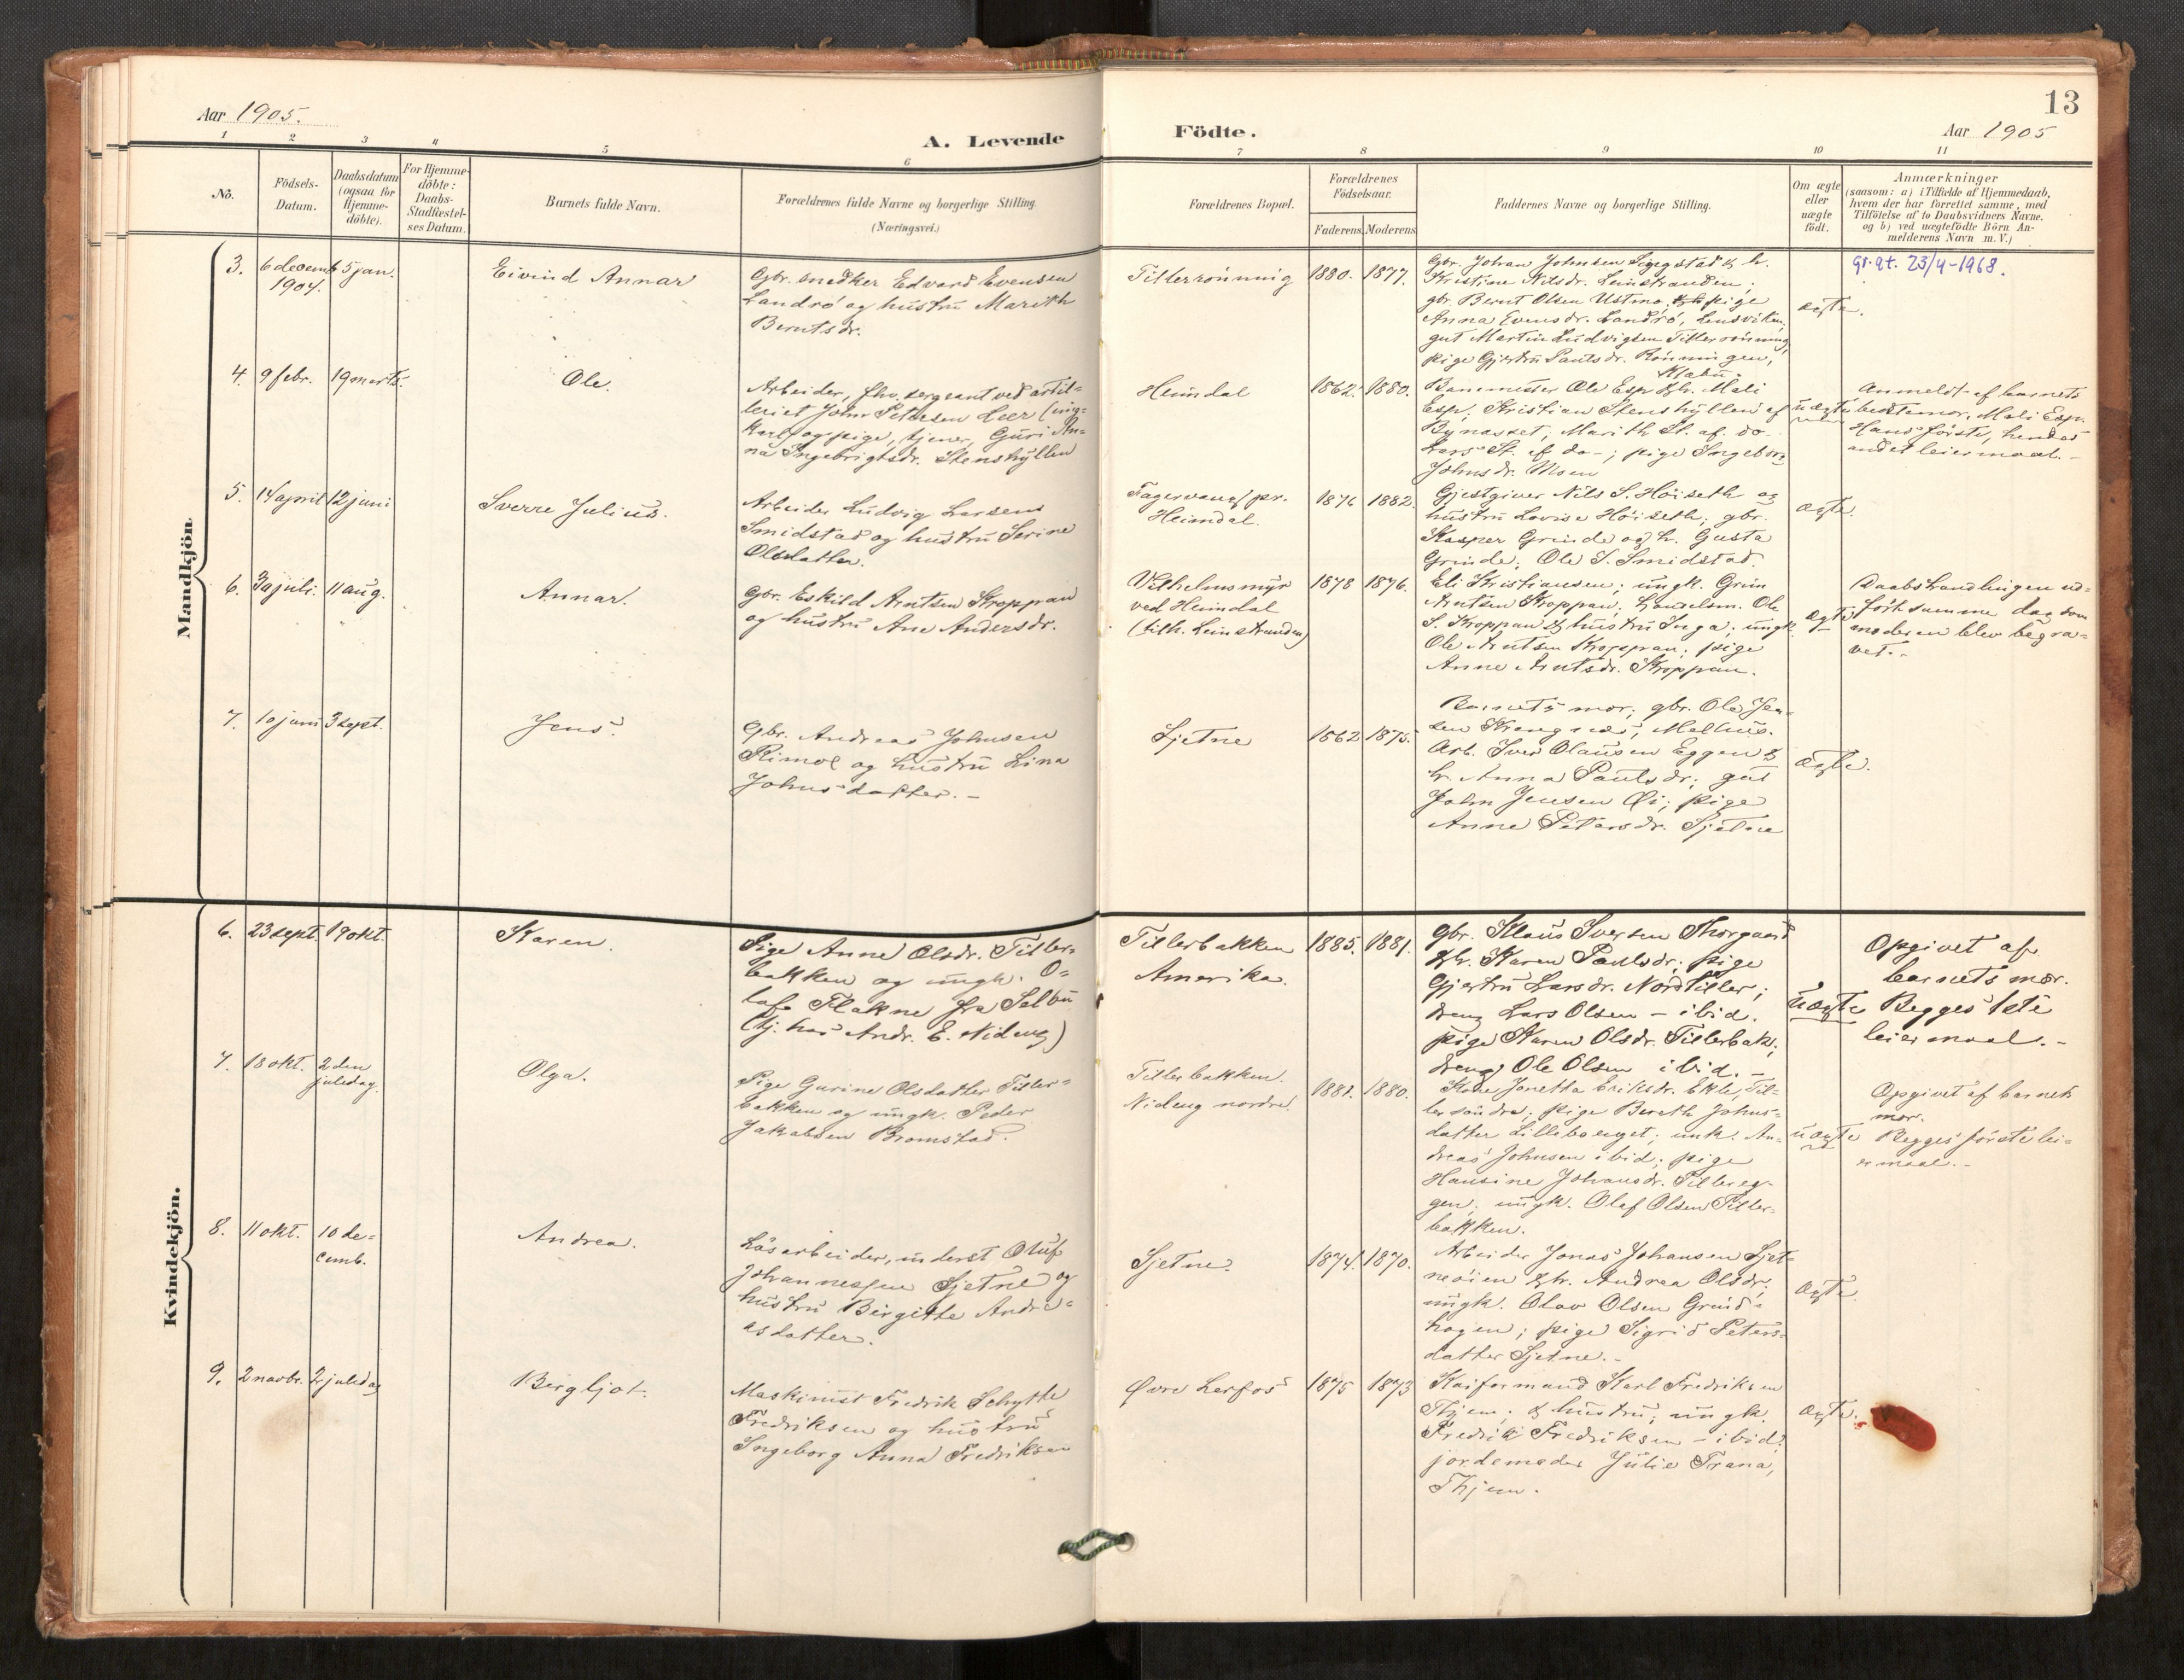 Aar 1905.
A. Levende
Födte.
13
Aar 1905
1
2
3
4
5
6
7
8
9
10
11
No.
Födsels-
Datum.
Daabsdatum
(ogsaa for
Hjemme-
döbte).
For Hjemme-
döbte:
Daabs-
Stadfæstel-
ses Datum.
Barnets fulde Navn.
Forældrenes fulde Navne og borgerlige Stilling.
(Næringsvei.)
Forældrenes Bopæl.
Forældrenes
Födselsaar.
Faderens
Moderens
Faddernes Navne og borgerlige Stilling.
Om ægte
eller
uægte
födt.
Anmærkninger
(saasom: a) i Tilfælde af Hjemmedaab,
hvem der har forrettet samme, med
Tilföielse af to Daabsvidners Navne.
og b) ved uægtefödte Börn An-
melderens Navn m. V.)
Mandkjön.
3.
6 decemb
1904.
5 jan.
Eivind Annar
Gbr. snedker Edvard Evensen
Landrö og hustru Marith
Berntsdr.
Tillerrönning
1880.
1877.
Gbr. Johan Johnsen & h.
Kristine Nilsdr. Leinstranden;
gbr. Bernt Olsen Ustmo, pige
Anna Evensdr. Landrö, Lensviken,
gut Martin Ludvigsen Tillerrönning,
pige Gjertru Paulsdr. Rönningen,
Klæbu.
ægte.
gr.at. 23/4-1968.
4.
9 febr.
19 marts.
Ole.
Arbeider, fhv. sergeant ved artil-
leriet John Petersen Leer (ung-
karl) og pige, tjener, Guri An-
na Ingebrigtsdr. Stenshyllen
Heimdal
1862.
1880.
Banemester Ole Esp & h. Mali
Esp; Kristian Stenshyllen af
Bynæsset, Marith St. af do
Lars St. af do-; pige Ingeborg
Johnsdr. Moen
uægte
Anmeldt af barnets
bedstemor, Mali Esp.
Hans förste, hendes
andet leiermaal.-
5.
14 april
12 juni
Sverre Julius.
Arbeider Ludvig Larsens
Smidstad og hustru Serine
Olsdatter.
Fagervang pr.
Heimdal.
1876
1882.
Gjestgiver Nils S. Höiseth og
hustru Lovise Höiseth; gbr.
Kasper Grinde og h. Gusta
Grinde; Ole S. Smidstad.
ægte.
6.
30 juli.
11 aug.
Annar.
Gbr. Eskild Arntsen Kroppan
og hustru Ane Andersdr.
Vilhelmsmyr
ved Heimdal
(tilh. Leinstranden)
1878
1876.
Eli Kristiansen; ungk. Grim
Arntsen Kroppan; handelsm. Ole
S. Kroppan & hustru Inga; ungk.
Ole Arntsen Kroppan; pige
Anne Arntsdr. Kroppan.
ægte
Daabshandlingen ud-
fört samme dag som
moderen blev begra-
vet.-
7.
10 juni
3 sept.
Jens.
Gbr. Andreas Johnsen
Rimol og hustru Lina
Johnsdatter.-
Sjetne
1862
1875.
Barnets mor; gbr. Ole Jen-
sen Melhus.
Arb. Iver Olausen Eggen &
h. Anna Paulsdr; gut
John Jensen Öi; pige
Anne Petersdr. Sjetne
ægte.
Kvindekjön.
6.
23 sept.
19 okt.
Karen.
Pige Anne Olsdr. Tiller-
bakken og ungk. O-
laf Flakne fra Selbu
(tj. hos Andr. E. Nideng)
Tillerbakken
Amerika.
1885.
1881.
Gbr. Klaus Iversen Thorgaard
& h. Karen Paulsdr; pige
Gjertru Larsdr. Nordtiller;
dreng Lars Olsen - ibid.
pige Karen Olsdr. Tillerbak.;
dreng Ole Olsen ibid.-
uægte
Opgivet af
barnets mor.
Begges 1ste
leiermaal.-
7.
18 okt.
2den
juledag.
Olga.
Pige Gurine Olsdatter Tiller-
bakken og ungk. Peder
Jakobsen Bromstad.
Tillerbakken.
Nideng nordre.
1881.
1880.
Kone Jonetta Eriksdr. Ekle, Til-
ler söndre; pige Bereth Johns-
datter Lilleberget; unk. An-
dreas Johnsen ibid; pige
Hansine Johansdr. Tillereg-
gen; ungk. Olaf Olsen Tiller-
bakken.
uægte
Opgivet af barnets
mor.
Begges förste lei-
ermaal.-
8.
11 okt.
10 de-
cemb.
Andrea.
Lösarbeider, inderst Oluf
Johannessen Sjetne og
hustru Birgitte Andre-
asdatter.
Sjetne.
1874.
1870.
Arbeider Jonas Johansen Sjet-
neöien & h. Andrea Olsdr;
ungk. Olav Olsen Grind-
hagen; pige Sigrid Peters-
datter Sjetne.-
ægte.
9.
2 novbr.
2 juledag
Bergljot.
Maskinist Fredrik Schytte
Fredriksen og hustru
Ingeborg Anna Fredriksen
Övre Lerfos
1875
1873
Kaiformand Karl Fredriksen
Thjem; & hustru; ungk.
Fredrik Fredriksen - ibid;
jordemoder Julie Trana,
Thjem.
ægte.